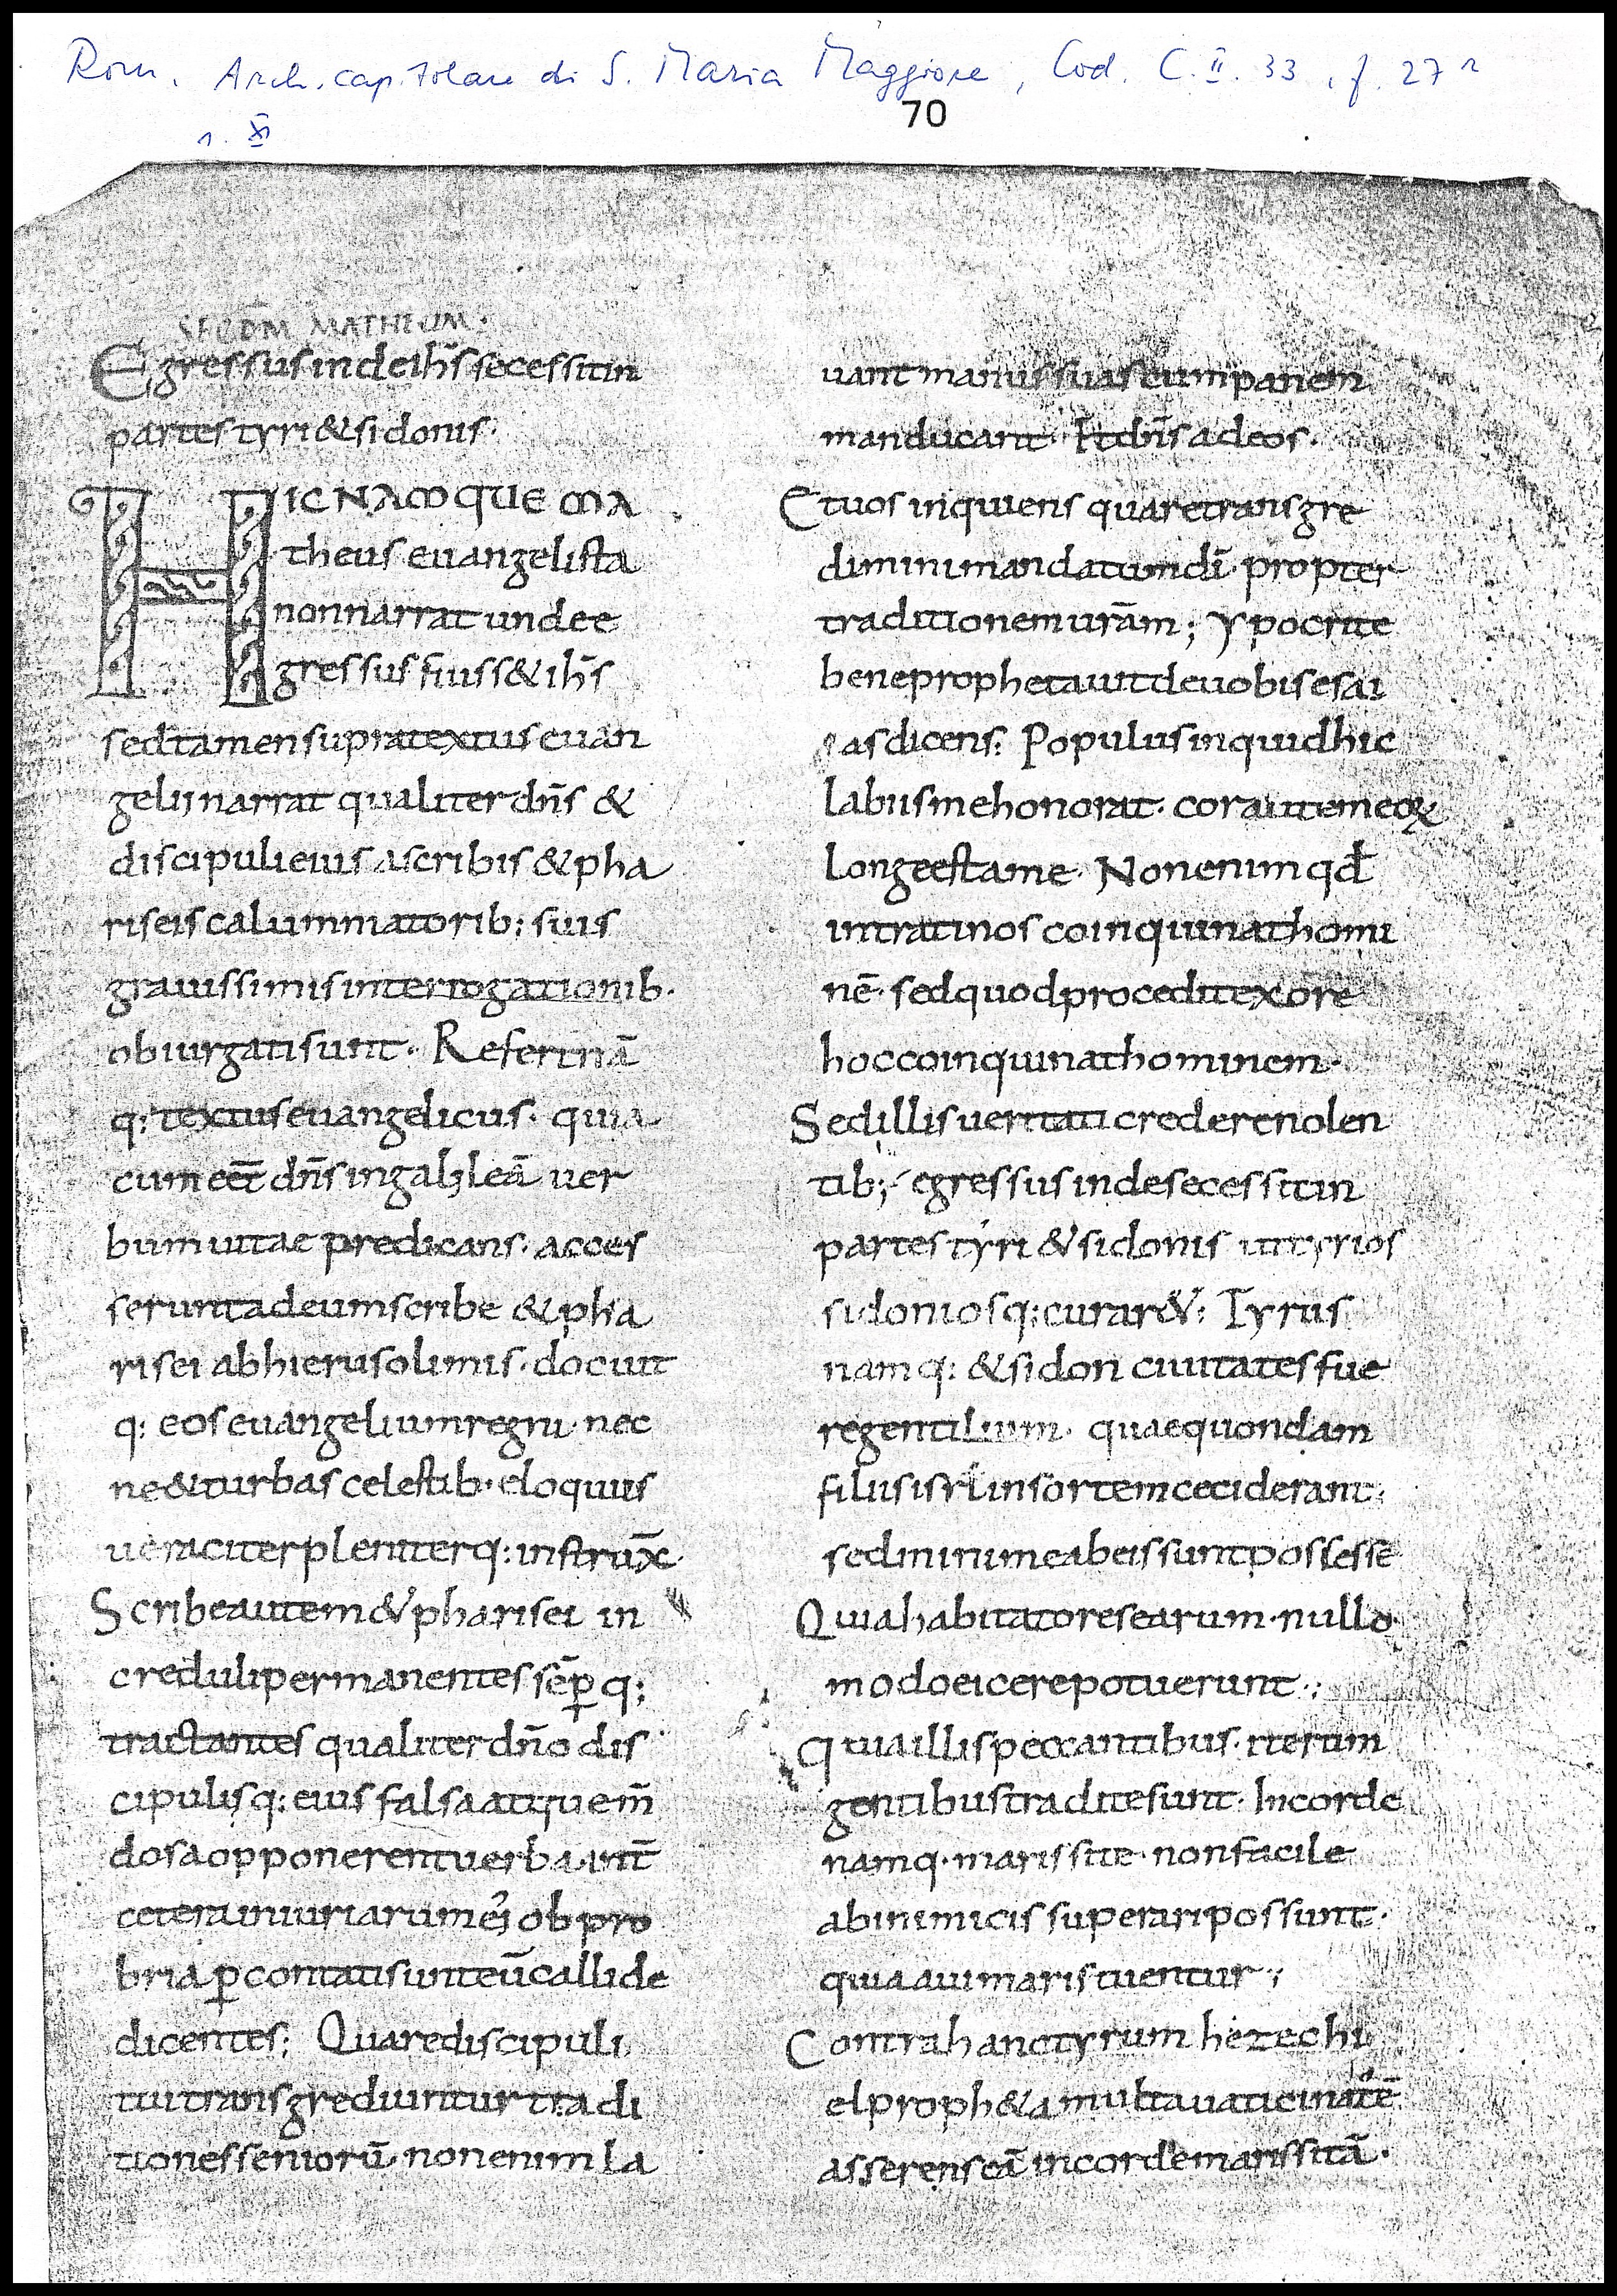 Rom. Arch. capitolare di S. Maria Maggiore, Cod. C. II. 33, f. 27 r
s. XI
70
SECDM MATHEUM·
Egressus inde ih̄s secessit in
partes tyri & sidonis·
HIC NAMQUE MA
theus euangelista
non narrat unde e
gressus fuiss& ih̄s
sed tamen supra textus euan
gelij narrat qualiter dn̄s &
discipuli eius a scribis & pha
riseis calummatorib; suis
grauissimis interrogationib·
obiurgati sunt· Refert nā
q: textus euangelicus· quia
cum eēt dn̄s in galyleā uer
bum uitae predicans· acces
serunt ad eum scribe & pha
risei ab hierusolimis· docuit
q: eos euangelium regni· nec
ne & turbas celestib· eloquiis
ueraciter pleniterq: instrux̄·
Scribe autem & pharisei in
creduli permanentes sēp q;
tractantes qualiter dn̄o dis
cipulisq: eius falsa atque m̄
dosa opponerent uerba· int̄
cetera iniuriarum ei; ob pro
bria pcontati sunt eū callide
dicentes; Quare discipuli
tui transgrediuntur tradi
tiones seniorū· non enim la
uant manus suas cum panem
manducant· Et dn̄s ad eos·
Et uos inquiens quare transgre
dimini mandatum dī· propter
traditionem urām; ypocrite
bene prophetauit de uobis esai
as dicens: Populus inquid hic
labiis me honorat· cor autem eoꝝ
longe est a me· Non enim qd̄
intrat in os coinquinat homi
nē· sed quod procedit ex ore
hoc coinquinat hominem·
Sed illis ueritati credere nolen
tib; egressus inde secessit in
partes tyri & sidonis ut tyrios
sidoniosq: curar&: Tyrus
namq: & sidon ciuitates fue
re gentilium· quae quondam
filiis isrl̄ in sortem ceciderant:
sed minime ab eis sunt possesse
Quia habitatores earum· nullo
modo eicere potuerunt·;
quia illis peccantibus· iterum
gentibus tradite sunt· In corde
namq· maris site· non facile
ab inimicis superari possunt·
quia aui maris tuentur·;
Contra hanc tyrum hezechi
el proph&a multa uaticinat̄ ē
asserens eā in corde maris sitā·